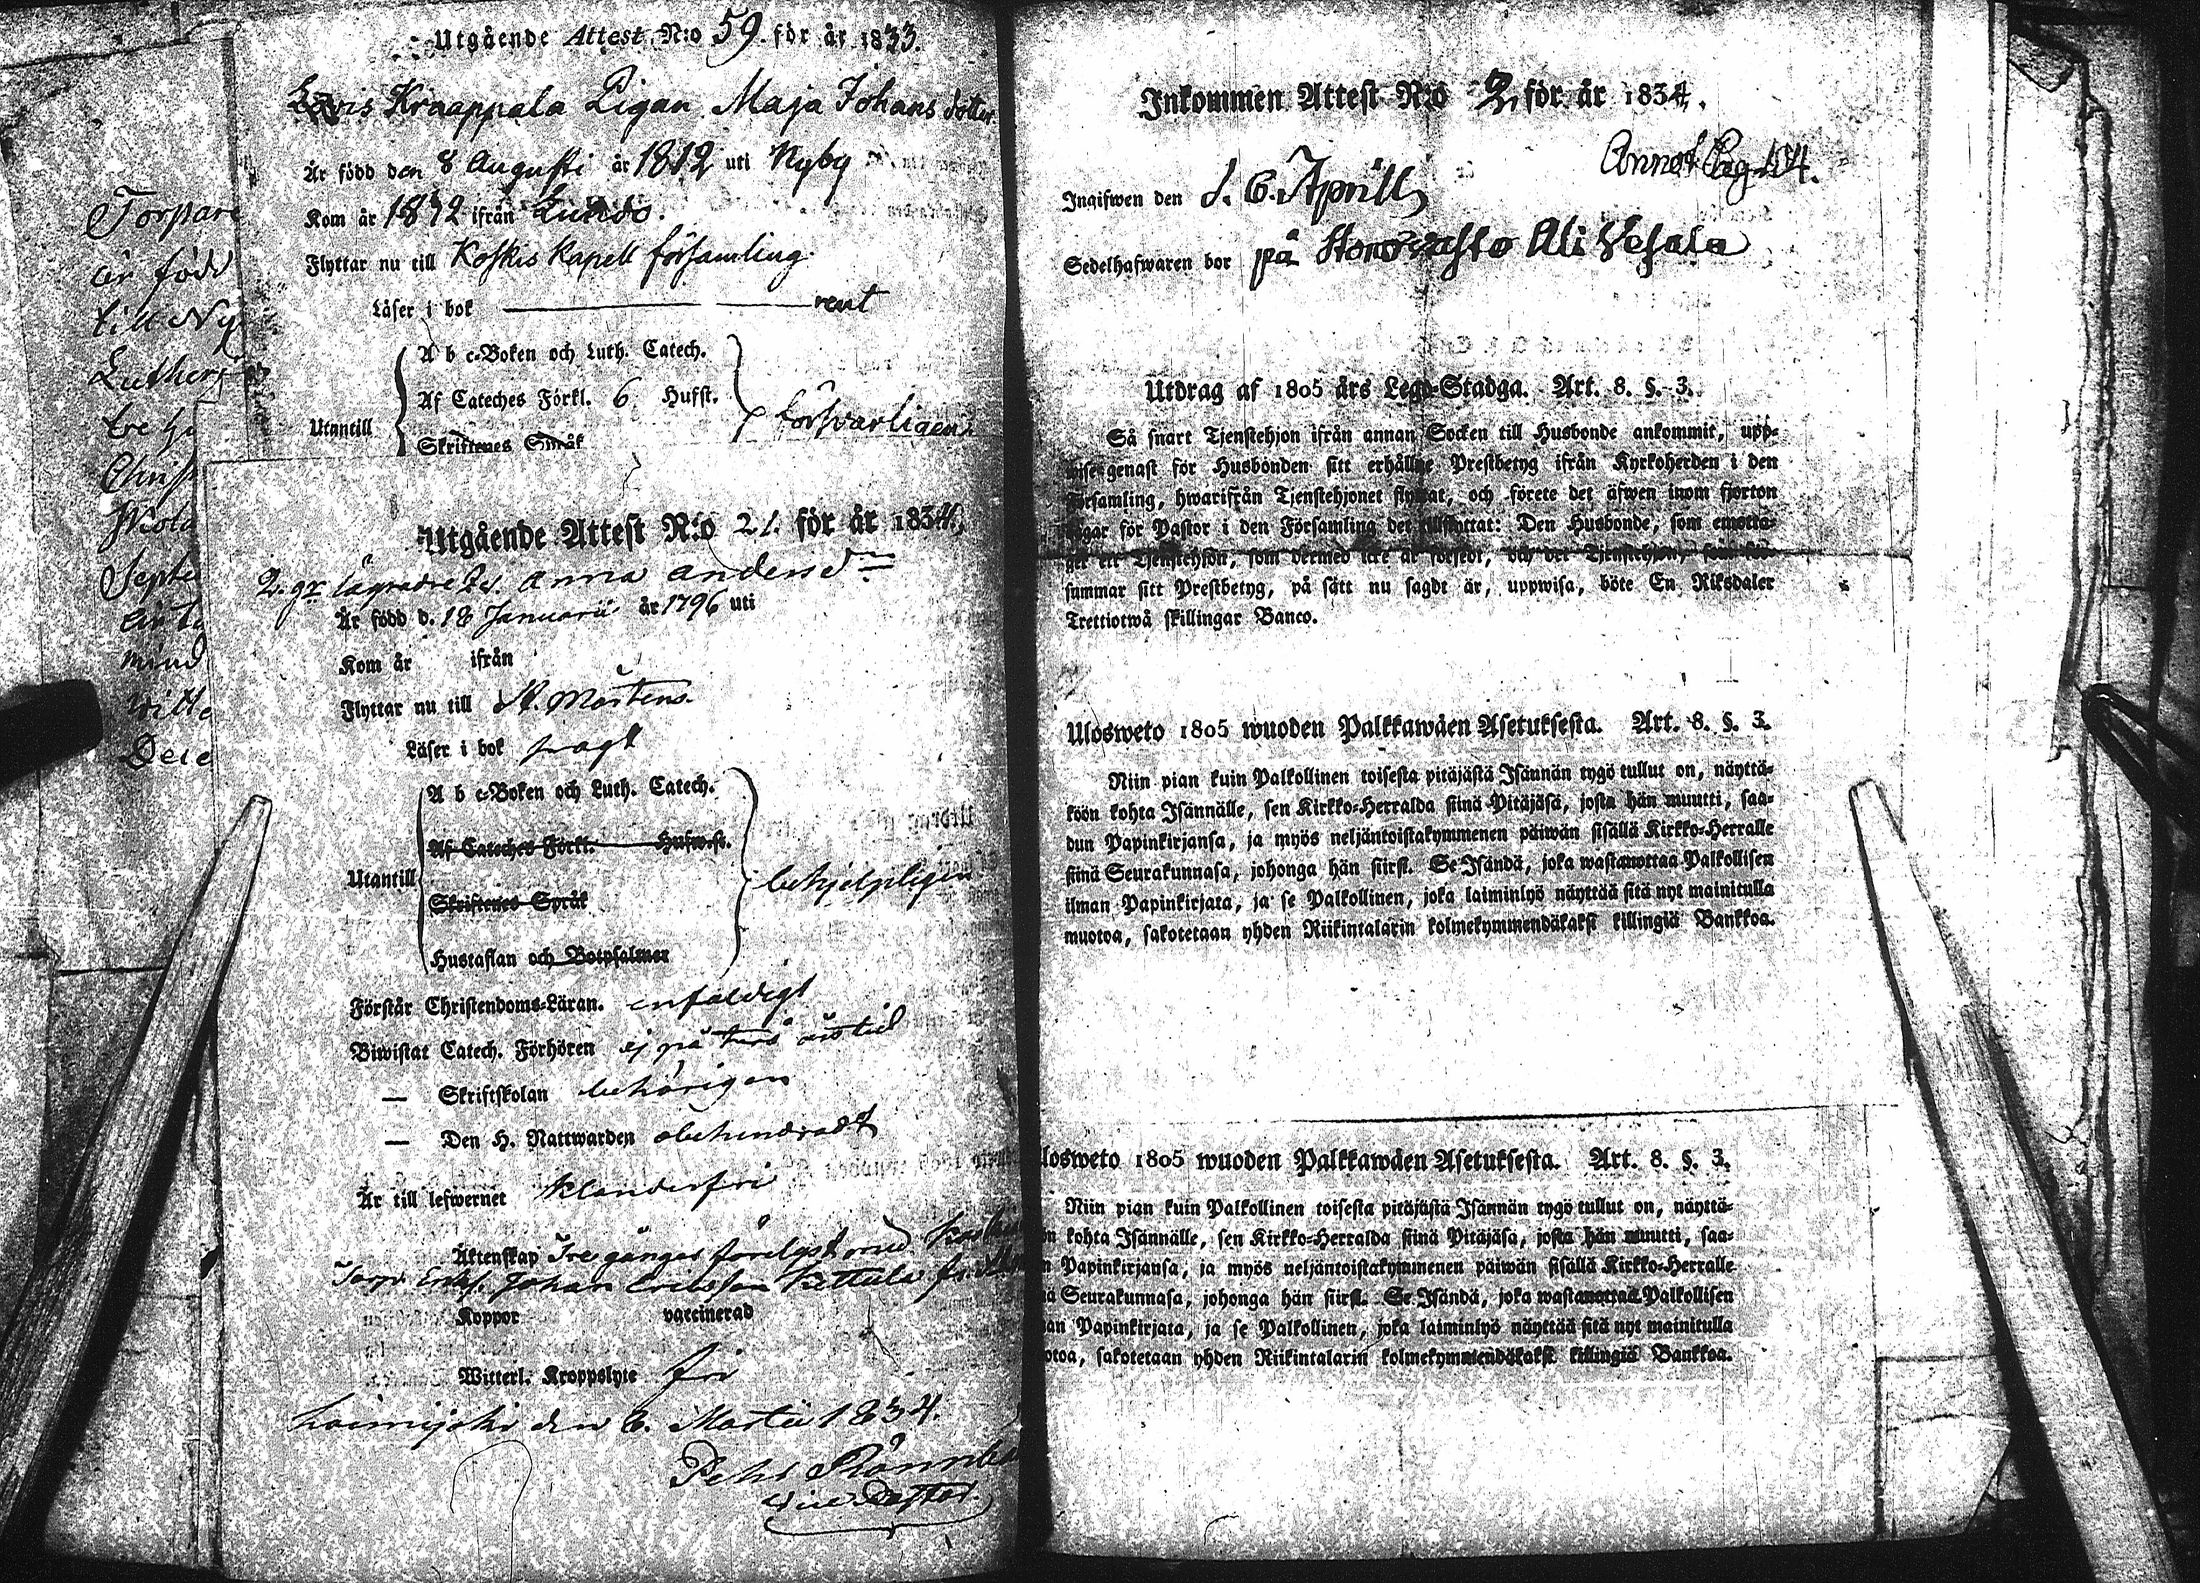 Torpare
är född
till Ny
Luthers
tre
Septe
mind
witte
Utgående Attest N:o 59. för år 1833.
Lovis Knaappala Pigan Maja Johans dotter
Är född den 8 Augusti år 1812 uti Nyby
Kom år 1812 ifrån Lundo.
Flyttar nu till Koskis Kapell församling.
Läser i bok rent
A b c-Boken och Luth. Catech.
Af Cateches Förkl. 6 Hufst.
Utantill försvarligen
Skriftenes Språk
Utgående Attest N:o 21. för år 1834,
Anna Andersd:r
Är född d. 18 Januarii år 1796 uti
Kom år ifrån
Flyttar nu till St. Mårtens.
Läser i bok swagt
A b c-Boken och Luth. Catech.
Af Cateches Förkl. Hufw.st.
Utantill behjelpligen
Skriftenes Språk
Hustaflan och Botpsalmer
Förstår Christendoms-Läran. enfaldigt
Biwistat Catech. Förhören ej på twå års tid
— Skriftskolan behörigen
— Den H. Nattwarden obehindradt
Är till lefwernet klanderfri
Äktenskap Tre gånger förelyst med
Torp. Enkl. Johan Ericsson Kettula
Koppor vaccinerad
Witterl. Kroppslyte fri
Loimijoki den 6. Martii 1834.
Pehr Rönnba
Vice Pastor.
Inkommen Attest N:o 2, för år 1834.
Annot. Pag. 154.
Ingifwen den d. 6. Aprill
Sedelhafwaren bor på
Utdrag af 1805 års Lego-Stadga. Art. 8. §. 3.
Så snart Tjenstehjon ifrån annan Socken till Husbonde ankommit, upp-
wise genast för Husbonden sitt erhållne Prestbetyg ifrån Kyrkoherden i den
Församling, hwarifrån Tjenstehjonet flyttat, och förete det äfwen inom fjorton
dagar för Pastor i den Församling det tillflyttat: Den Husbonde, som emotta-
get ett Tjenstehjon, som dermed icke är försedt, och det Tjenstehjon, som för-
summar sitt Prestbetyg, på sätt nu sagdt är, uppwisa, böte En Riksdaler
Trettiotwå skillingar Banco.
Ulosweto 1805 wuoden Palkkawäen Asetuksesta. Art. 8. §. 3.
Niin pian kuin Palkollinen toisesta pitäjästä Isännän tygö tullut on, näyttä-
köön kohta Isännälle, sen Kirkko-Herralda siinä Pitäjäsä, josta hän muutti, saa-
dun Papinkirjansa, ja myös neljäntoistakymmenen päiwän sisällä Kirkko-Herralle
siinä Seurakunnasa, johonga hän siirsi. Se Isändä, joka wastanottaa Palkollisen
ilman Papinkirjata, ja se Palkollinen, joka laiminlyö näyttää sitä nyt mainitulla
muotoa, sakotetaan yhden Riikintalarin kolmekymmendäkaksi killingiä Bankkoa.
losweto 1805 wuoden Palkkawäen Asetuksesta. Art. 8. §. 3.
Niin pian kuin Palkollinen toisesta pitäjästä Isännän tygö tullut on, näyttä-
n kohta Isännälle, sen Kirkko-Herralda siinä Pitäjäsä, josta hän muutti, saa-
n Papinkirjansa, ja myös neljäntoistakymmenen päiwän sisällä Kirkko-Herralle
ä Seurakunnasa, johonga hän siirsi. Se Isändä, joka wastanottaa Palkollisen
an Papinkirjata, ja se Palkollinen, joka laiminlyö näyttää sitä nyt mainitulla
otoa, sakotetaan yhden Riikintalarin kolmekymmendäkaksi killingiä Bankkoa.